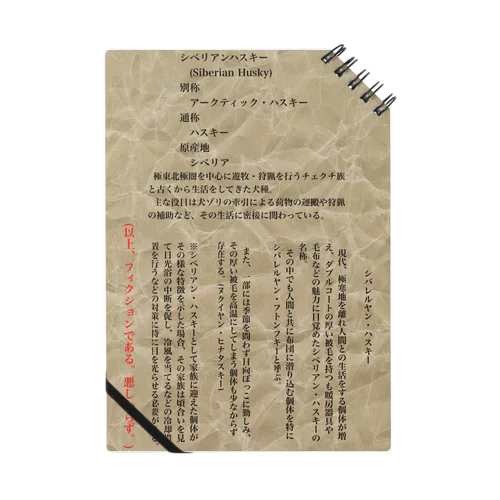 シベリアンハスキー
(Siberian Husky)
別称
アークティック・ハスキー
通称
ハスキー
原産地
シベリア
極東北極圏を中心に遊牧・狩猟を行うチュクチ族
と古くから生活をしてきた犬種。
主な役目は犬ゾリの牽引による荷物の運搬や狩猟
の補助など、その生活に密接に関わっている。
シバレルヤン・ハスキー
現代、極寒地を離れ人間との生活をする個体が増
え、ダブルコートの厚い被毛を持つも暖房器具や
毛布などの魅力に目覚めたシベリアン・ハスキーの
名称。
その中でも人間と共に布団に潜り込む個体を特に
シバレルヤン・フトンフキーと呼ぶ。
また、一部には季節を問わず日向ぼっこに勤しみ、
その厚い被毛を高温にしてしまう個体も少なからず
存在する。(ヌクイヤン・ヒナタスキー)
※シベリアン・ハスキーとして家族に迎えた個体が
その様な特徴を示した場合、その家族は頃合いを見
て日光浴の中断を促し、冷風を当てるなどの冷却措
置を行うなどの対策に特に目を光らせる必要が
(以上、フィクションである。悪し らず。)